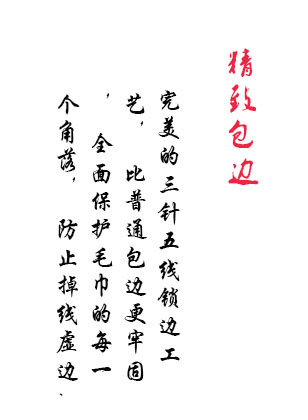 精致包边
完美的三针五线锁边工
艺，比普通包边更牢固
，全面保护毛巾的每一
个角落，防止掉线虚边、